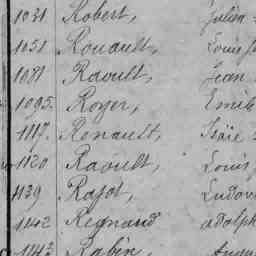 1031. Robert, Julien
1051. Rouault, Louis
1081 Raoult, Jean
1095. Royer, Emile
1117. Renault, Isaïe
1120 Raoult, Louis
1139 Rajot,
1142 Regnaud Adolph
Rabin,